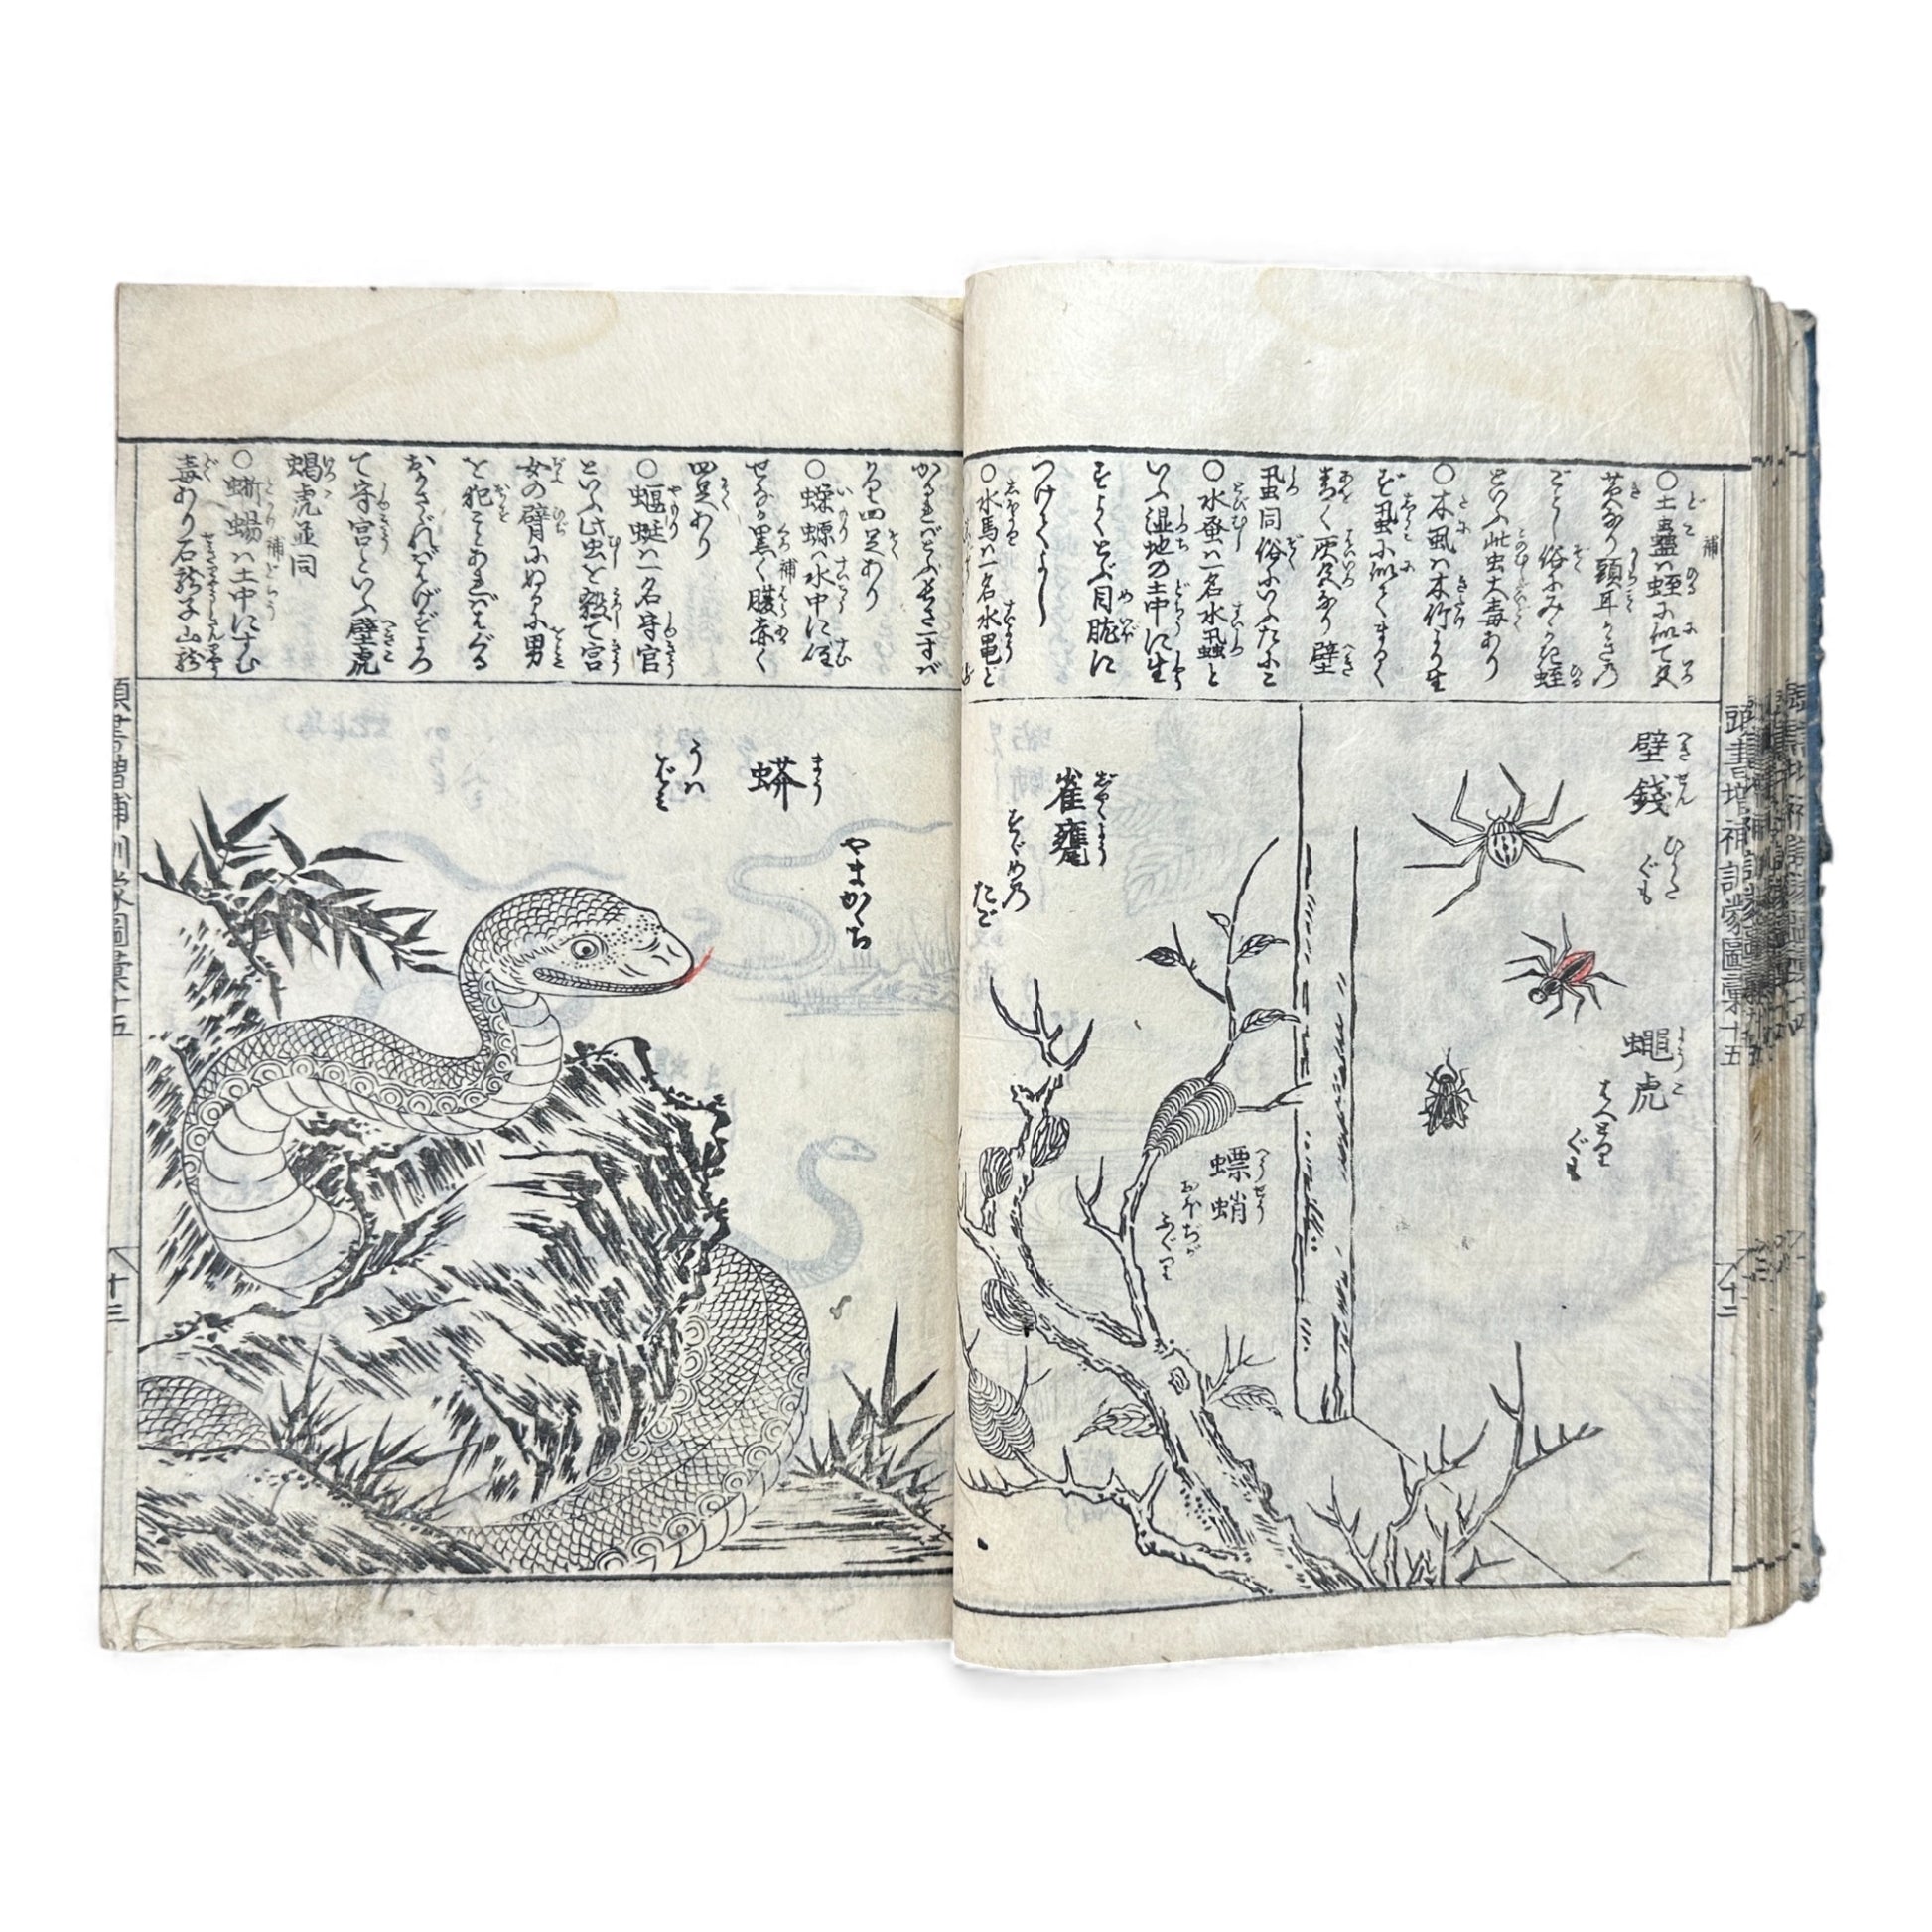 ○土蠱ハ蛭に似て又
黄なり頭耳かきの
ごとし俗にみゝず蛭
といふ此虫大毒あり
○木虱ハ木竹より生
ず虱に似てまるく
青く灰色なり壁
虱同俗にいふたに
○水蚤ハ一名水虱と
いふ湿地の土中に生
ずよくとぶ目眦に
つけてよし
○水馬ハ一名水黽と
壁錢
へきせん
ひらた
ぐも
蠅虎
ようこ
はへとり
ぐも
螵蛸
へうせう
おほぢが
ふぐり
雀甕
すゞめの
たご
頭書増補訓蒙圖彙十五
十二
かければとぶ長さ一寸ば
かり四足あり
○蠑螈ハ水中に住
せなか黒く腹赤く
四足あり
○蝘蜓ハ一名守宮
といふ此虫を殺て宮
女の臂にぬるに男
を犯ことあればはぐる
おかさゞればはげずよつ
て守宮といふ壁虎
蝎虎並同
○蜥蜴ハ土中にすむ
毒あり石龍子山龍
蟒
まう
うはばみ
やまかゞち
頭書増補訓蒙圖彙十五
十三